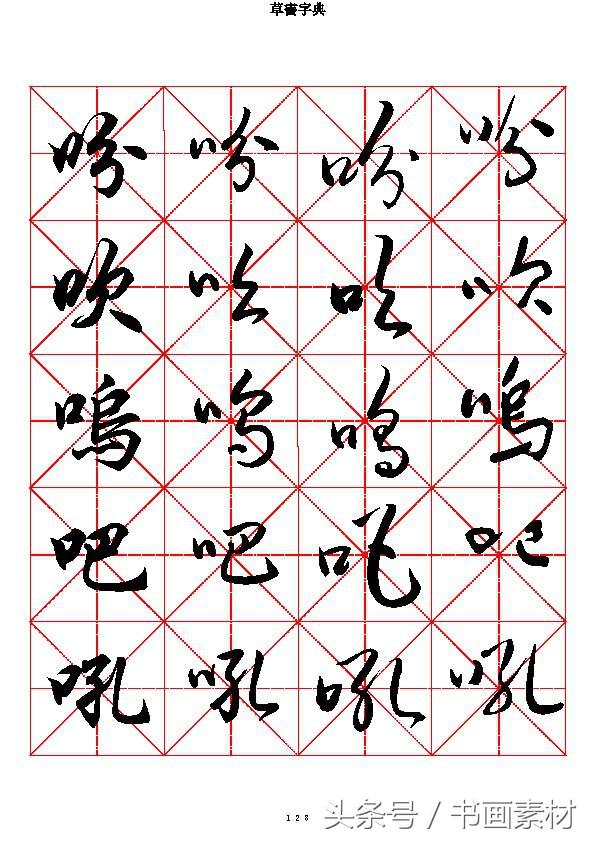 草書字典
吩 吩 吩 吩
吹 吹 吹 吹
嗚 嗚 嗚 嗚
吧 吧 吧 吧
吼 吼 吼 吼
128
头条号 / 书画素材